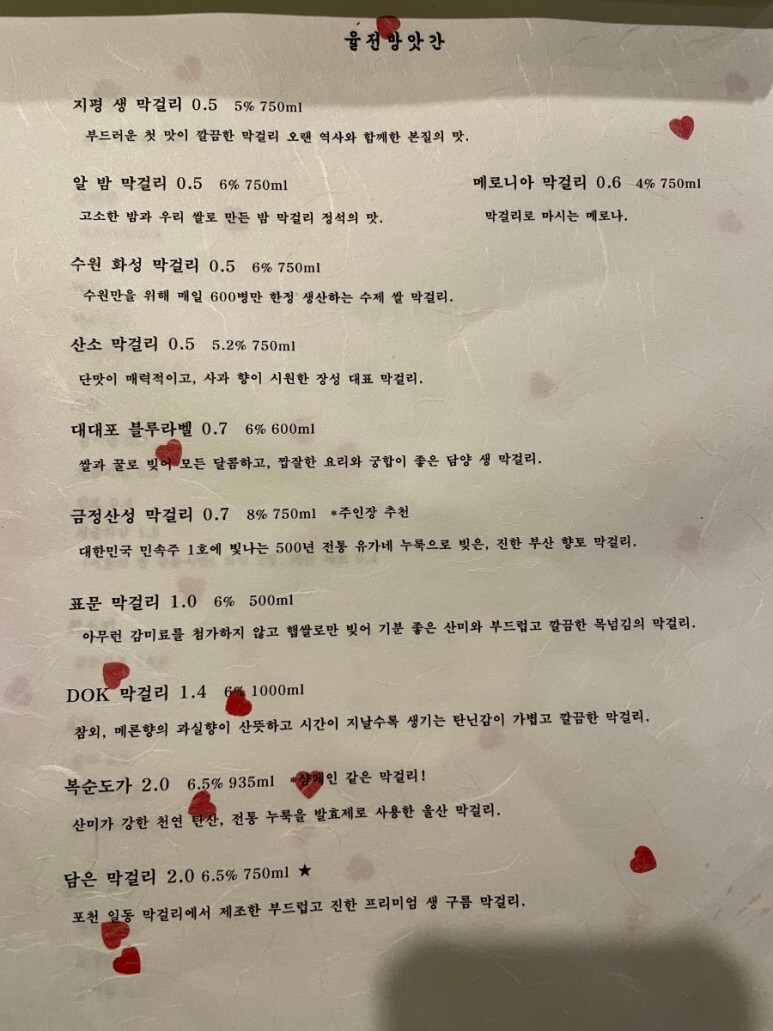 율전방앗간
지평 생 막걸리 0.5 5% 750ml
부드러운 첫 맛이 깔끔한 막걸리 오랜 역사와 함께한 본질의 맛.
알 밤 막걸리 0.5 6% 750ml
고소한 밤과 우리 쌀로 만든 밤 막걸리 정석의 맛.
메로니아 막걸리 0.6 4% 750ml
막걸리로 마시는 메로나.
수원 화성 막걸리 0.5 6% 750ml
수원만을 위해 매일 600병만 한정 생산하는 수제 쌀 막걸리.
산소 막걸리 0.5 5.2% 750ml
단맛이 매력적이고, 사과 향이 시원한 장성 대표 막걸리.
대대포 블루라벨 0.7 6% 600ml
쌀과 꿀로 빚어 모든 달콤하고, 짭잘한 요리와 궁합이 좋은 담양 생 막걸리.
금정산성 막걸리 0.7 8% 750ml *주인장 추천
대한민국 민속주 1호에 빛나는 500년 전통 유가네 누룩으로 빚은, 진한 부산 향토 막걸리.
표문 막걸리 1.0 6% 500ml
아무런 감미료를 첨가하지 않고 햅쌀로만 빚어 기분 좋은 산미와 부드럽고 깔끔한 목넘김의 막걸리.
DOK 막걸리 1.4 6% 1000ml
참외, 메론향의 과실향이 산뜻하고 시간이 지날수록 생기는 탄닌감이 가볍고 깔끔한 막걸리.
복순도가 2.0 6.5% 935ml *샴페인 같은 막걸리!
산미가 강한 천연 탄산, 전통 누룩을 발효제로 사용한 울산 막걸리.
담은 막걸리 2.0 6.5% 750ml ★
포천 일동 막걸리에서 제조한 부드럽고 진한 프리미엄 생 구름 막걸리.